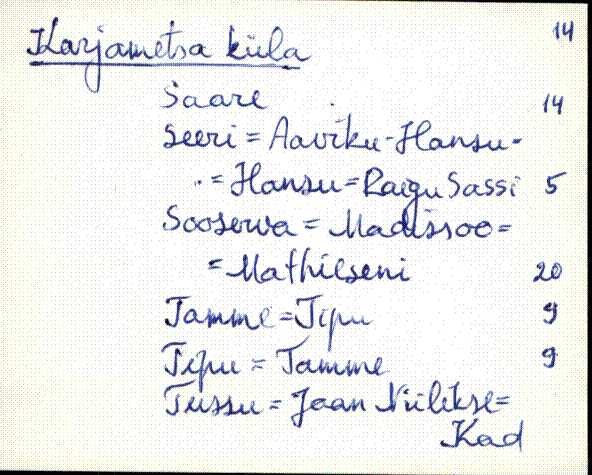 14
Karjametsa küla
Saare 14
Seeri = Aaviku-Hansu-
= Hansu = Raigu Sassi 5
Sooserva = Madissoo =
= Mathilseni 20
Tamme = Tipu 9
Tipu = Tamme 9
Tussu = Jaan Niilekse =
Kad